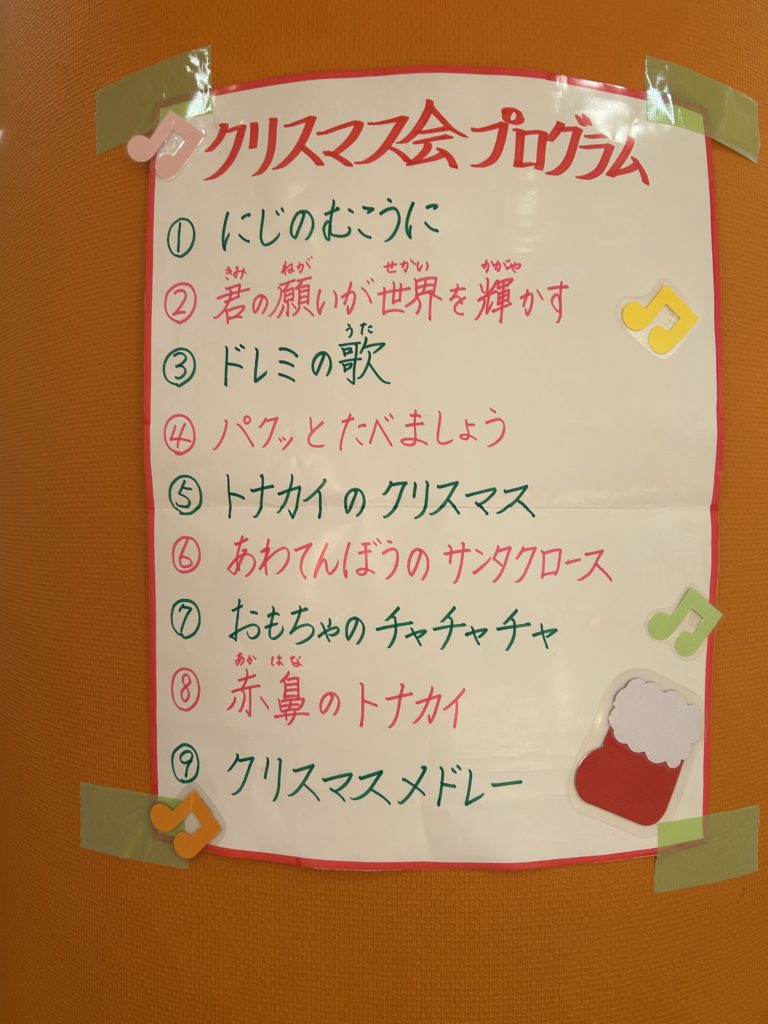 クリスマス会プログラム
① にじのむこうに
きみ ねが せかい かがや
② 君の願いが世界を輝かす
うた
③ ドレミの歌
④ パクッとたべましょう
⑤ トナカイのクリスマス
⑥ あわてんぼうのサンタクロース
⑦ おもちゃのチャチャチャ
あか はな
⑧ 赤鼻のトナカイ
⑨ クリスマスメドレー